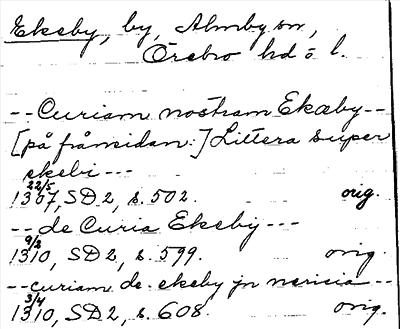 Ekeby, by, Almby sn,
Örebro hd o l.
--Curiam nostram Ekæby--
[på fråmsidan:] Littera super
ekebi---
22/5
1307, SD2, s. 502. orig.
--de Curia Ekeby---
9/2
1310, SD2, s. 599. orig.
--curiam de ekeby jn nericia--
3/4
1310, SD2, s. 608. orig.